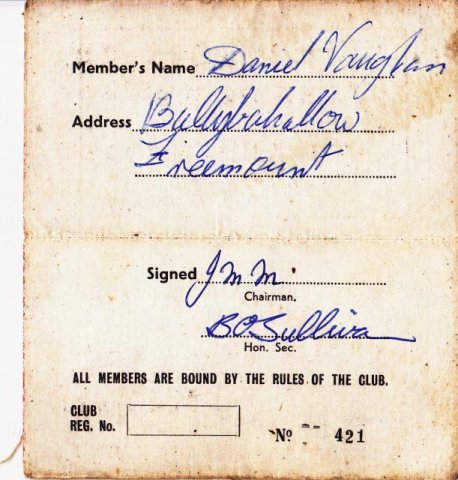 Member's Name Daniel Vaughan
Address Ballybahallow
Freemount
Signed J M M
Chairman.
B O'Sullivan
Hon. Sec.
ALL MEMBERS ARE BOUND BY THE RULES OF THE CLUB.
CLUB
REG. No.
No 421